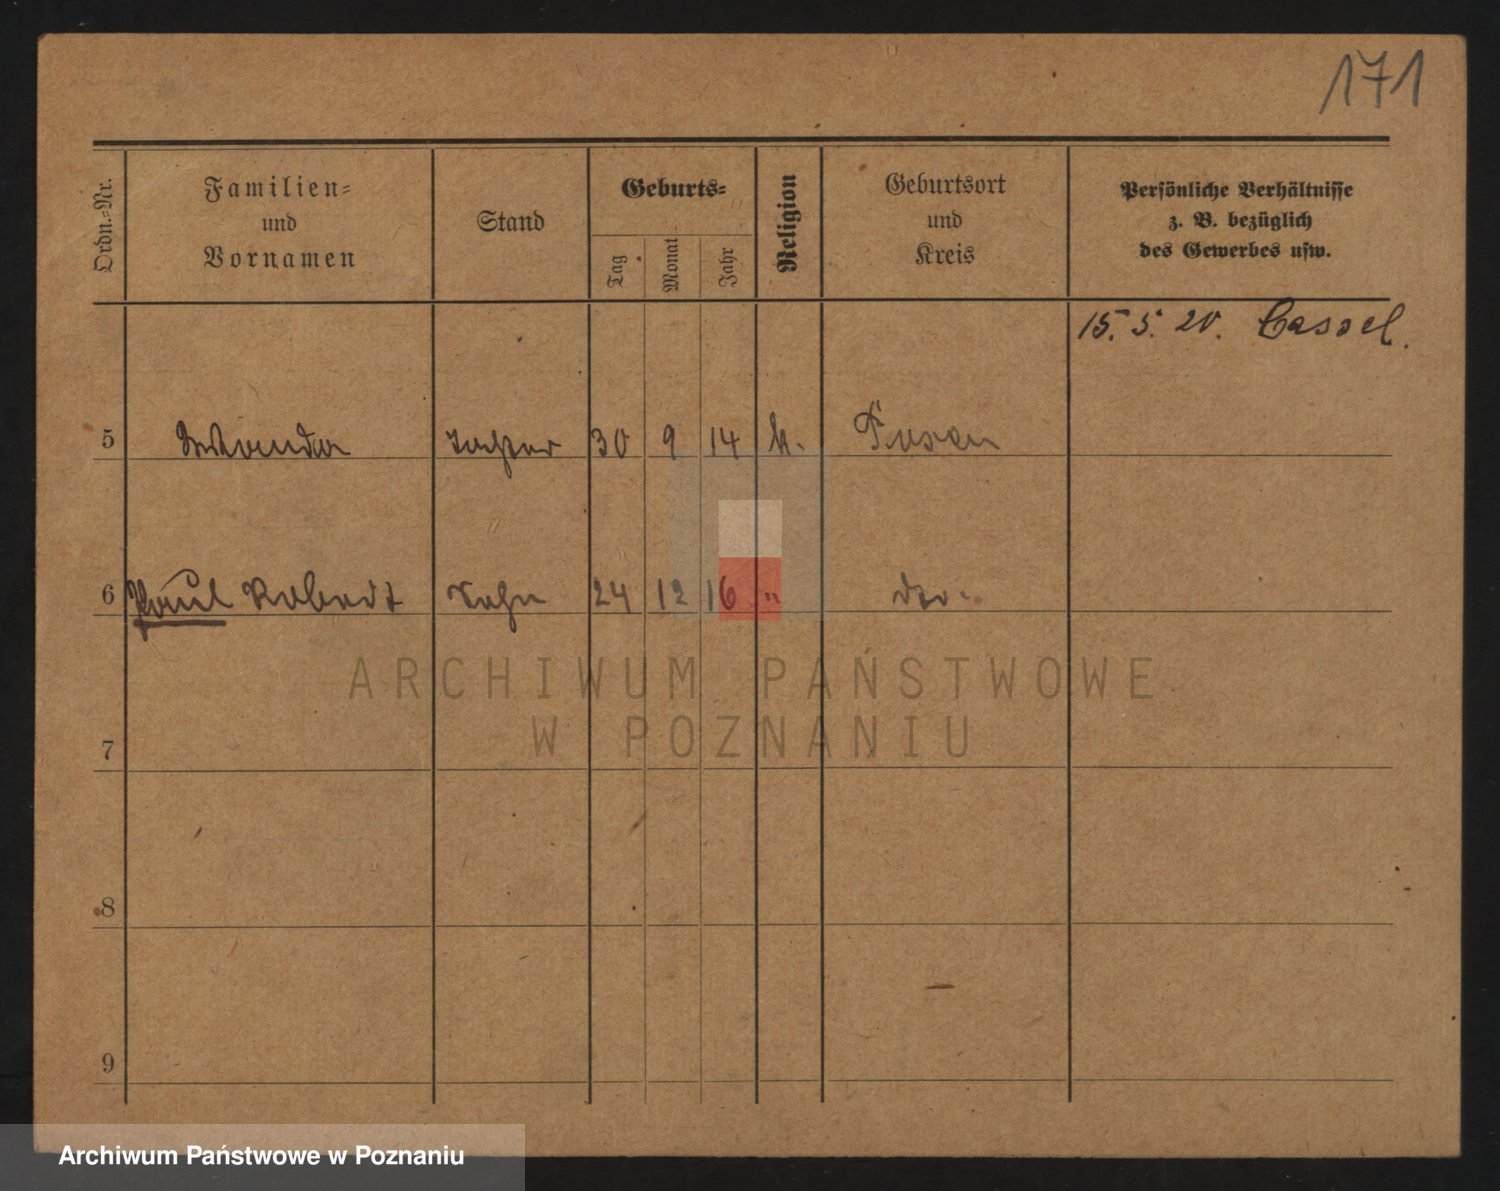 171
Ordn.=Nr.
Familien=
und
Vornamen
Stand
Geburts=
Tag
Monat
Jahr
Religion
Geburtsort
und
Kreis
Persönliche Verhältnisse
z. B. bezüglich
des Gewerbes usw.
15. 5. 20. Cassel.
5 Wanda Tochter 30 9 14 k. Posen
6 Paul Robert Sohn 24 12 16 " dto.
7
8
9
ARCHIWUM PAŃSTWOWE
W POZNANIU
Archiwum Państwowe w Poznaniu